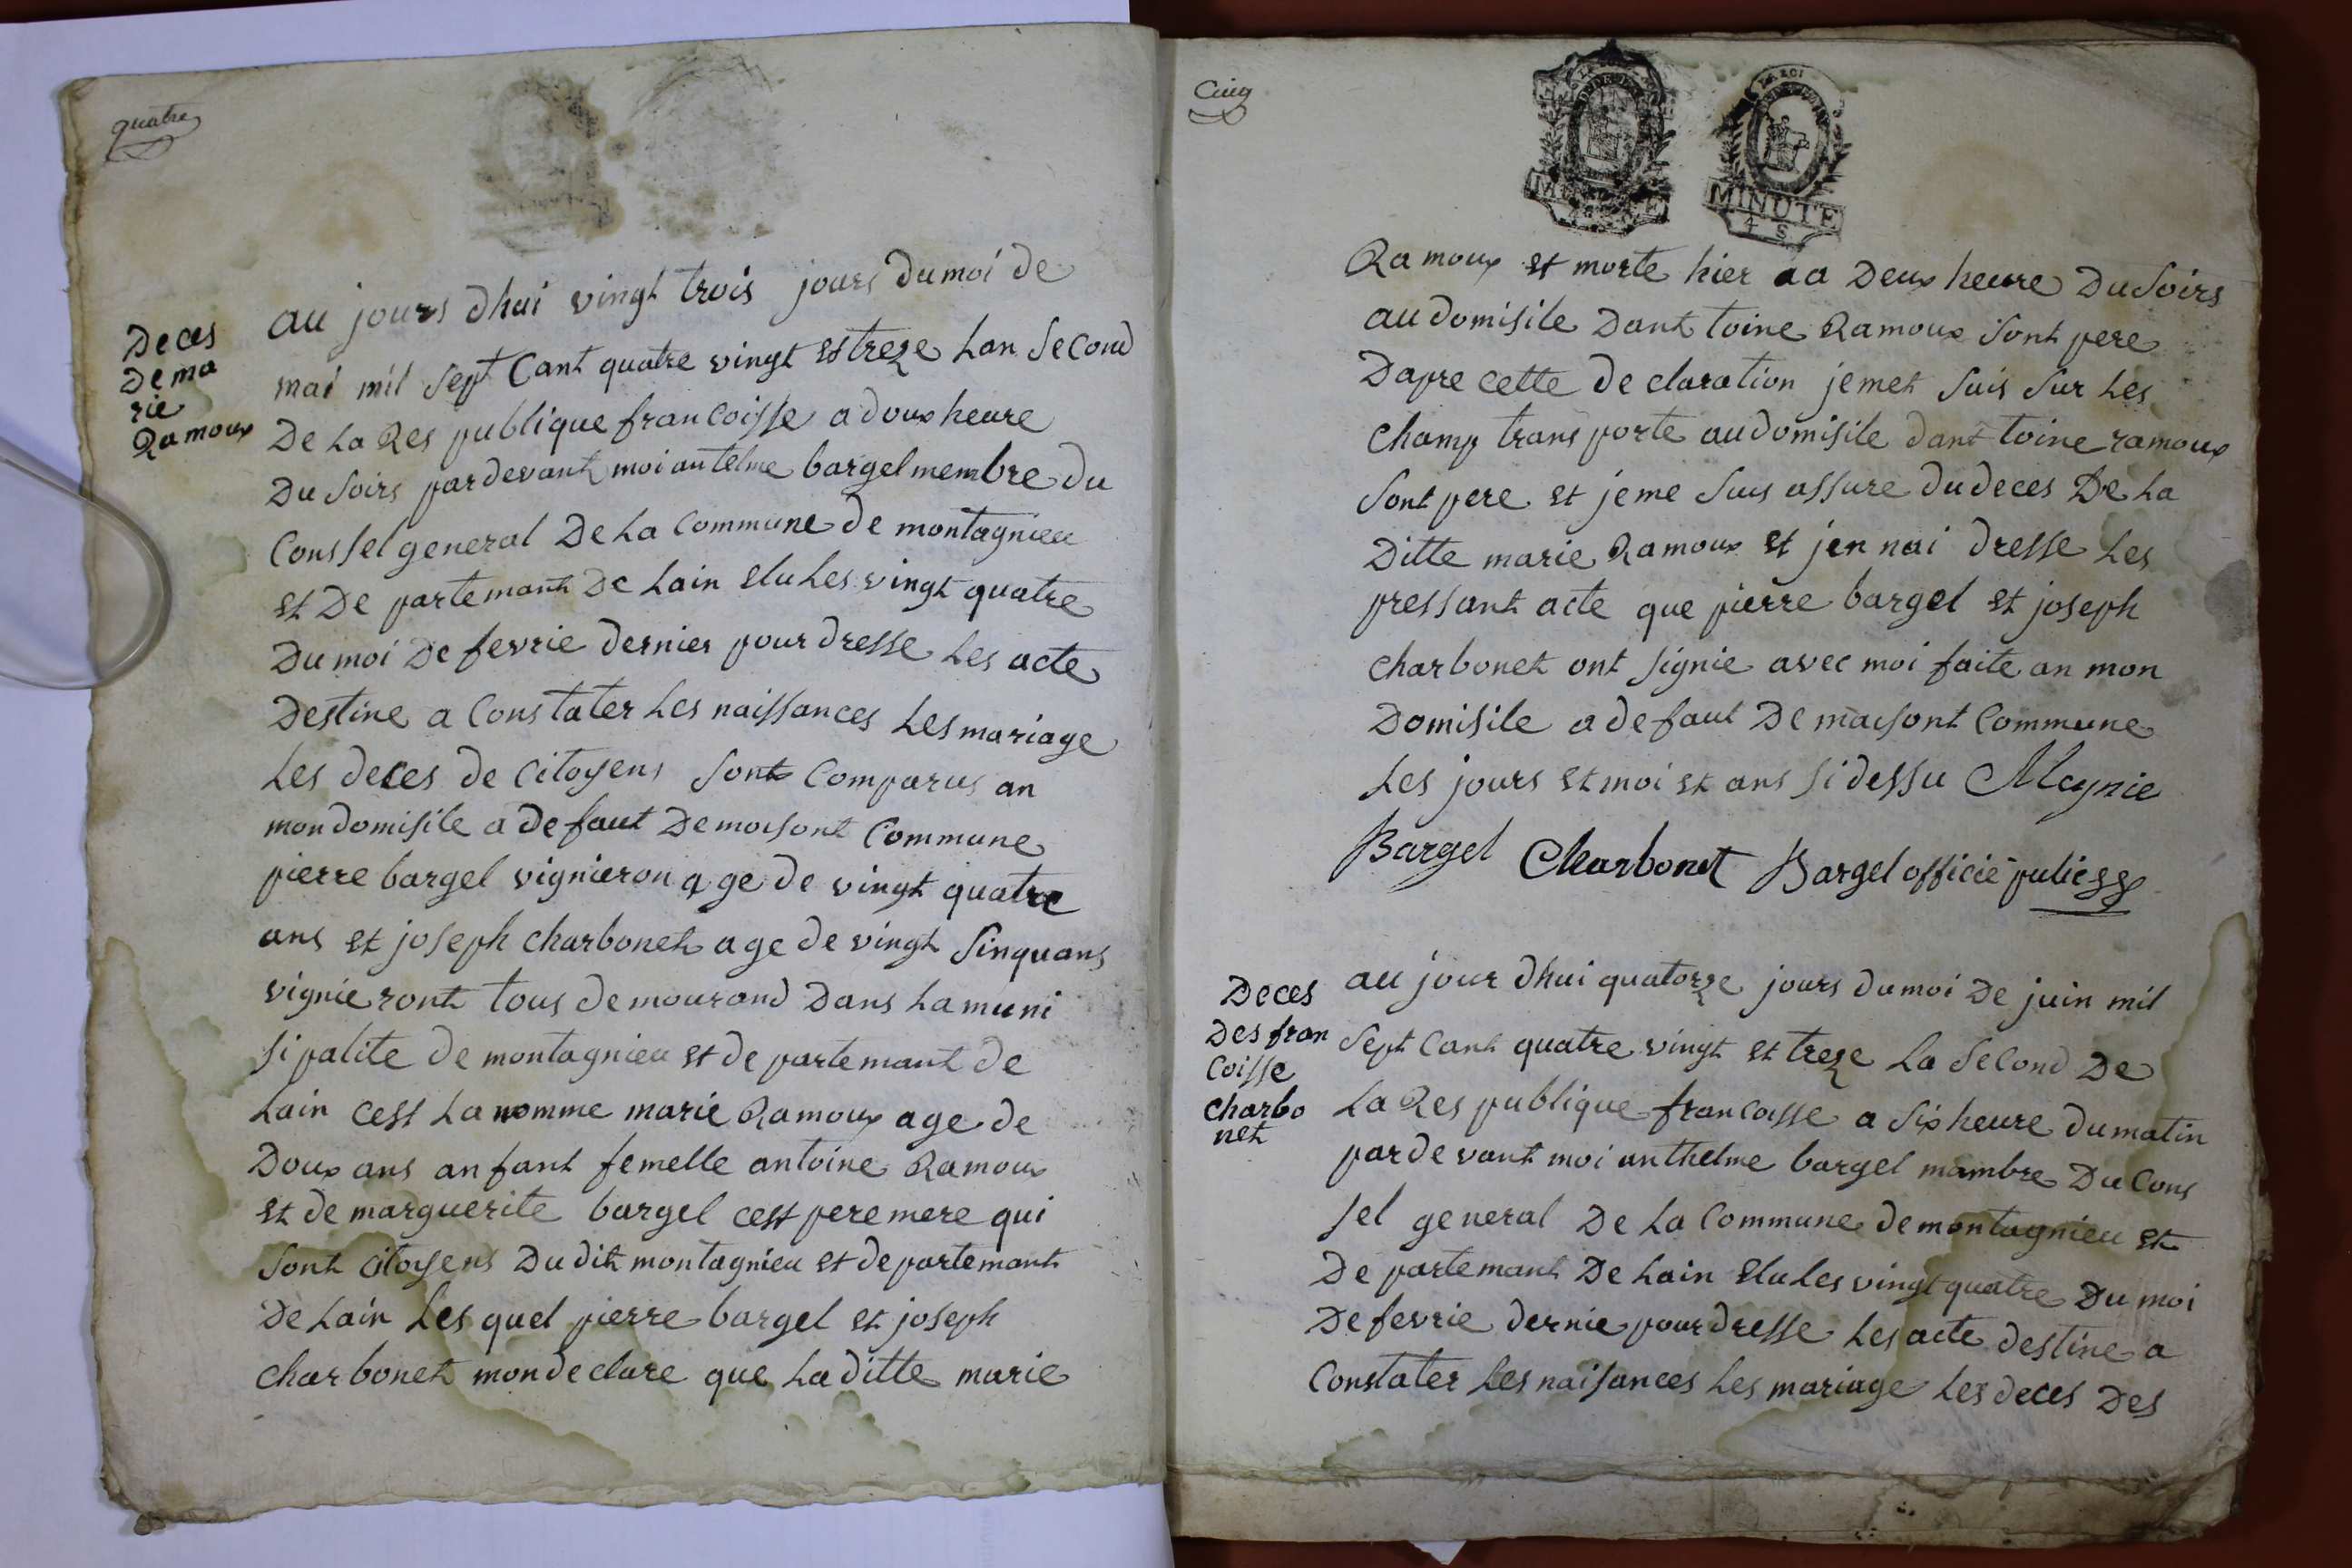 quatre
Deces
De ma
rie
Ramoux
au jours dhui vingt trois jours du moi de
mai mil sept Cant quatre vingt et treze Lan Second
De La Res publique francoisse a doux heure
Du Soirs par devant moi antelme bargel membre du
Conssel general De La Commune de montagnieu
et De partemant De Lain elu Les vingt quatre
Du moi De fevrie dernier pour dresse Les acte
Destine a Constater Les naissances Les mariage
Les deces de Citoyens sont Comparus an
mon domisile a defaut De maisont Commune
pierre bargel vignieron age de vingt quatre
ans et joseph charbonet age de vingt sinq ans
vignieront tous demourand Dans La muni
sipalite de montagnieu et de partemant de
Lain cest La nomme marie Ramoux age de
Doux ans anfant femelle antoine Ramoux
et de marguerite bargel cest pere mere qui
sont citoyens Du dit montagnieu et departemant
De Lain Les quel pierre bargel et joseph
charbonet mon declare que La ditte marie
Cinq
LA LOI
MINUTE
4 S
Ramoux et morte hier a a Deux heure Du Soirs
au domisile Dant toine Ramoux sont pere
Dapre cette declaration jemet suis sur Les
champ trans porte au domisile dant toine ramoux
sont pere et jeme suis assure du deces De La
Ditte marie Ramoux et jen nai dresse Les
pressant acte que pierre bargel et joseph
charbonet ont signie avec moi faite an mon
Domisile a defaut De maisont Commune
Les jours et moi et ans si dessu Meynie
Bargel Charbonet Bargel officié publics
Deces
Des fran
Coisse
Charbo
net
au jour dhui quatorze jours du moi De juin mil
Sept Cant quatre vingt et treze La Second De
La Res publique francoisse a six heure du matin
par de vant moi anthelme bargel mambre Du Cons
sel general De La Commune de montagnieu et
De partemant De Lain elu Les vingt quatre Du moi
De fevrie dernie pour dresse Les acte destine a
Constater Les naisances Les mariage Les deces Des